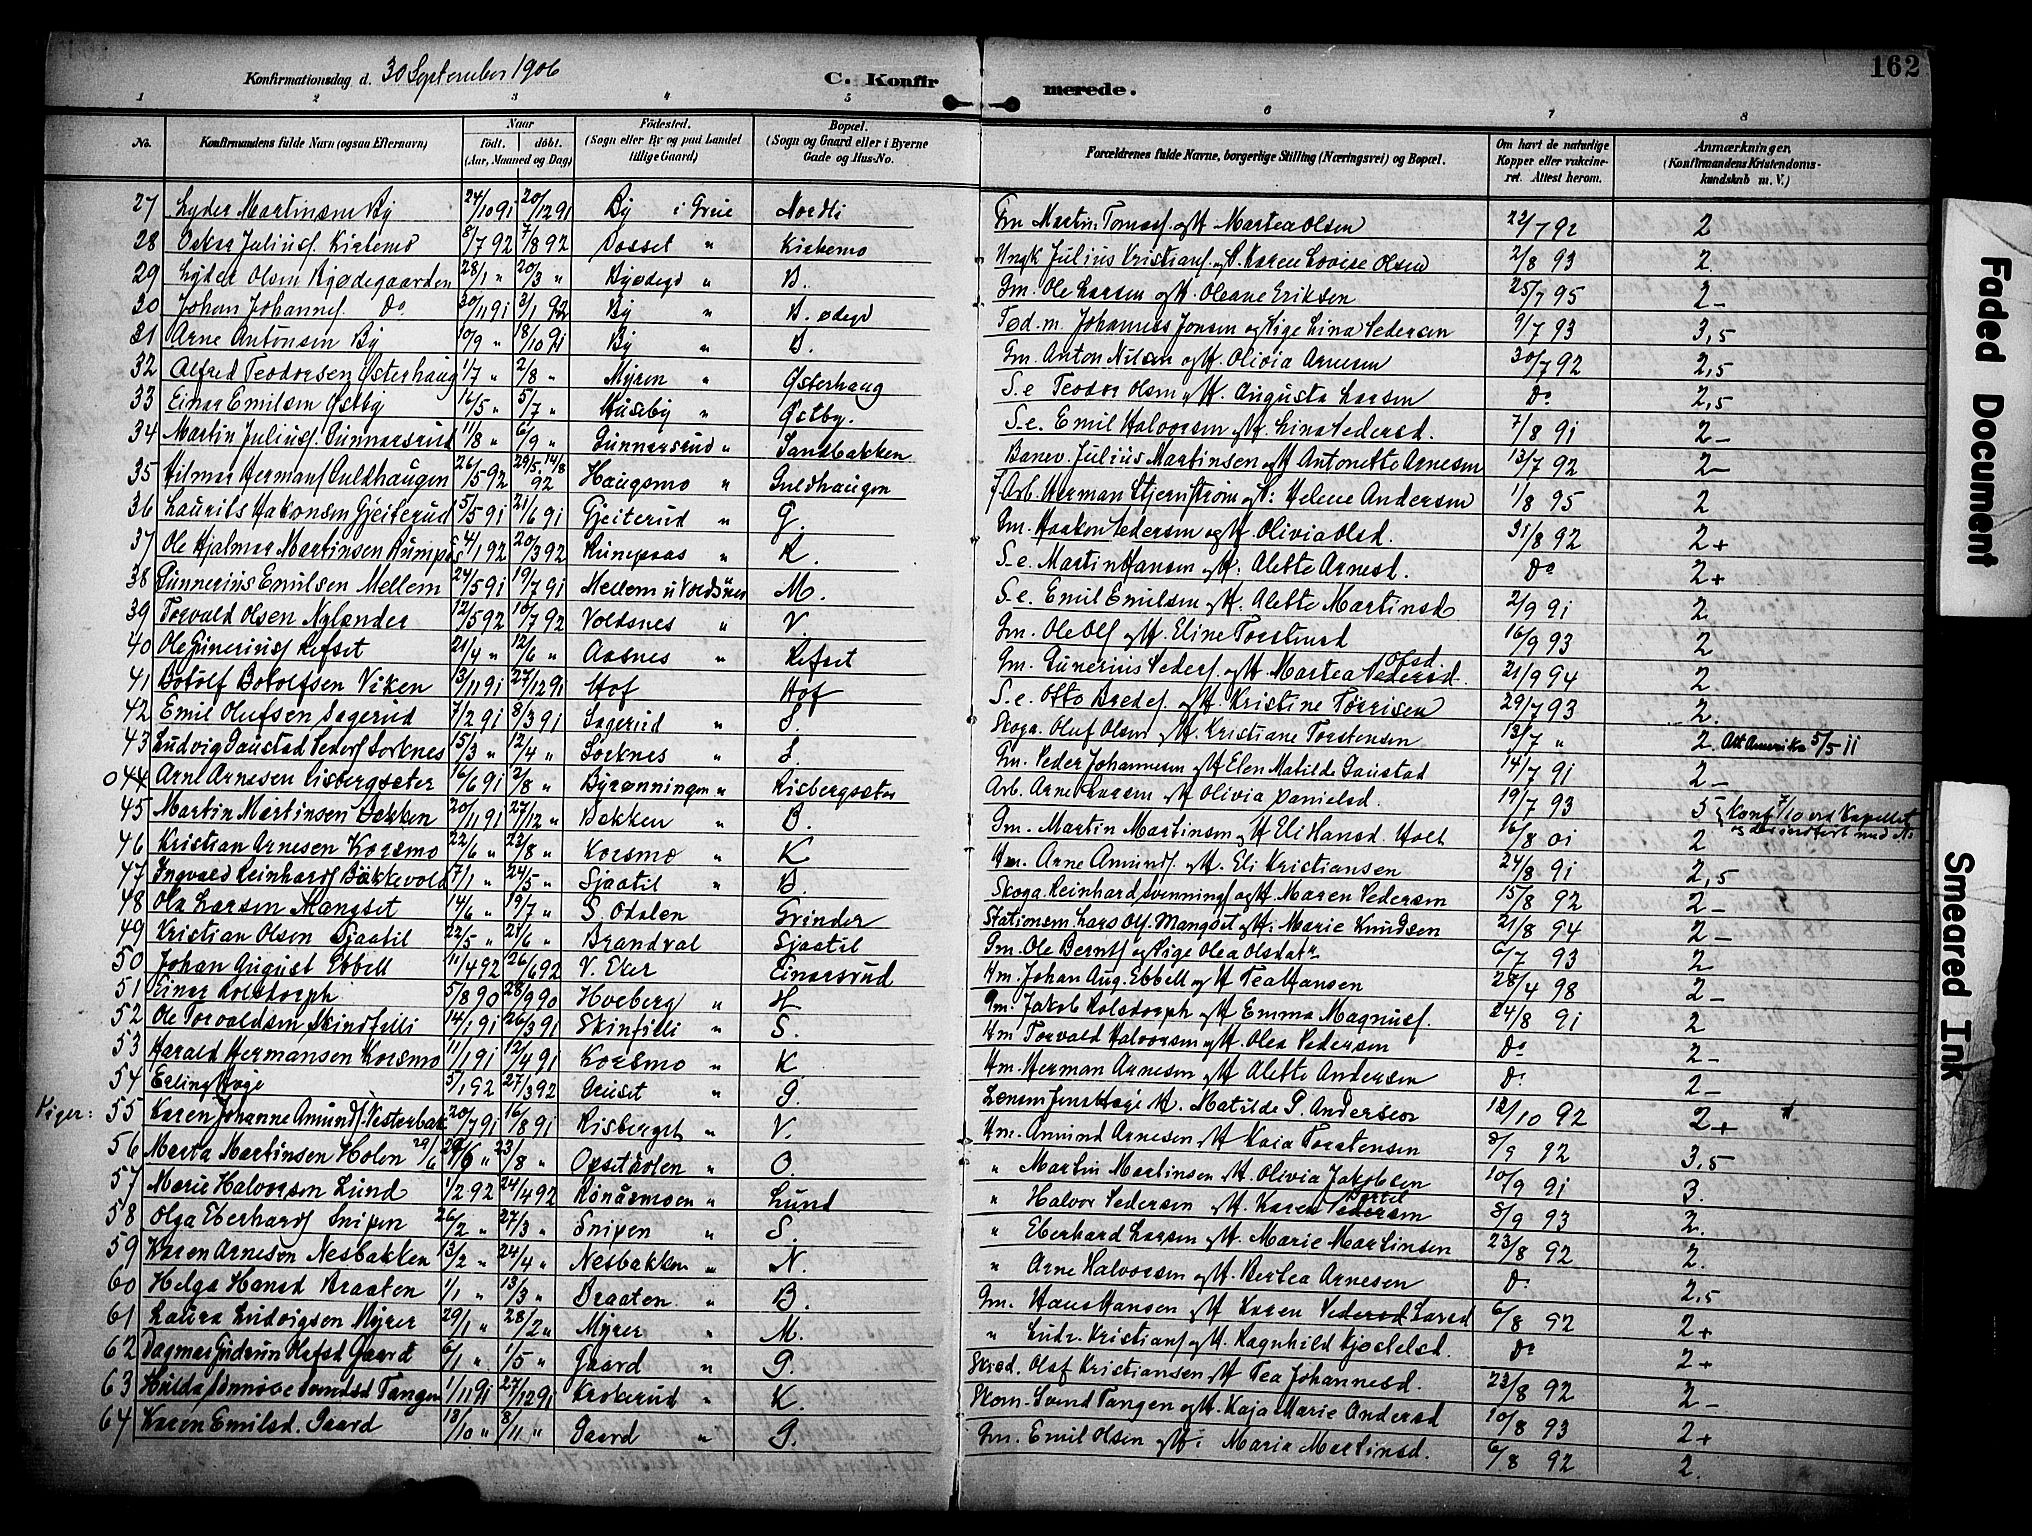 Konfirmationsdag d. 30 September 1906 C. Konfirmerede. 162
1 2 3 4 5 6 7 8
No. Konfirmandens fulde Navn (ogsaa Efternavn) Naar Födt. döbt. (Aar, Maaned og Dag) Födested. (Sogn eller By og paa Landet tillige Gaard) Bopæl. (Sogn og Gaard eller i Byerne Gade og Hus-No. Forældrenes fulde Navne, borgerlige Stilling (Næringsvei) og Bopæl. Om havt de naturlige Kopper eller vakcineret. Attest herom. Anmærkninger. (Konfirmandens Kristendomskundskab m. V.)
27 Lyder Martinsen By 24/10 91 20/12 91 By i Grue Nordli Gm Martin Tomasf. og H Martea Olsen 22/7 92 2
28 Oskar Juliusf. Kirkemo 8/7 92 7/8 92 Dossel " Kirkemo Ungk Julius Kristianf. og P. Karen Lovise Olsen 2/8 93 2
29 Lyder Olsen Byødegaarden 28/1 " 20/3 " Byødegd " B. Gm. Ole Larsen og H. Oleane Eriksen 25/7 95 2-
30 Johan Johannesf. Do 30/11 91 3/1 92 By " B. ødegd Fød. m. Johannes Jonsen og Pige Lina Pedersen 9/7 93 3,5
31 Arne Antonsen By 10/9 " 18/10 91 By " B. Gm. Anton Nilsen og H. Olivia Arnesen 30/7 92 2,5
32 Alfred Teodorsen Østerhaug 1/7 " 2/8 " Myren " Østerhaug S.e Teodor Olsen og H. Augusta Larsen Do 2,5
33 Einar Emilsen Østby 16/5 " 5/7 " Huseby " Østby. S.e. Emil Halvorsen og H. Lina Pedersd. 7/8 91 2-
34 Martin Juliusf. Gunnarsrud 11/8 " 6/9 " Gunnarsrud " Sandbakken Banev. Julius Martinsen og H Antonette Arnesen 13/7 92 2-
35 Hilmar Hermansf Guldhaugen 26/5 92 29/5. 14/8 92 Haugsmo " Guldhaugen f. Arb. Herman Stjernstrøm og P: Helene Andersen 1/8 95 2
36 Laurits Hakonsen Gjeiterud 5/5 91 21/6 91 Gjeiterud " G. Gm. Haakon Pedersen og H. Olivia Olsd. 31/8 92 2+
37 Ole Hjalmar Martinsen Rumpaas 4/1 92 20/3 92 Rumpaas " R. S.e. Martin Hansen og H: Alette Arnesd. Do 2+
38 Gunnerius Emilsen Mellem 24/5 91 19/7 91 Mellem u Voldsnes M. S.e. Emil Emilsen og H. Alette Martinsd 2/9 91 2
39 Torvald Olsen Nylænder 12/5 92 10/7 92 Voldsnes " V. Gm. Ole Olf og H. Eline Torstensd 16/9 93 2
40 Ole Gunneriusf Refset 21/4 " 12/6 " Aasnes " Refset Gm. Gunerius Pedersf. og H. Martea Olsd. 21/9 94 2
41 Botolf Botolfsen Viken 13/11 91 27/12 91 Hof Hof S.e. Otto Bredesf. og H. Kristine Tørrisen 29/7 93 2.
42 Emil Olufsen Sagerud 7/2 91 8/3 91 Sagerud " S. Skoga. Oluf Olsen og H. Kristiane Torstensen 13/7 " 2. Att Amerika 5/5 11
43 Ludvig Saustad Pedersf Sorknes 15/3 " 12/4 " Sorknes " S. Gm. Peder Johannesen og H Elen Matilde Saustad 14/7 91 2-
044 Arne Arnesen Risbergsæter 16/6 91 2/8 " Byrønningen " Risbergsæter Arb. Arne Larsen og H Olivia Danielsd. 19/7 93 5 Konf 7/10 ved Kapellet
45 Martin Martinsen Bakken 20/11 91 27/12 " Bakken " B. Gm. Martin Martinsen og H Eli Hansd. Holt 16/8 01 2
46 Kristian Arnesen Korsmo 22/6 " 23/8 " Korsmo " K Hm. Arne Amundsf. og H. Eli Kristiansen 24/8 91 2,5
47 Ingvald Reinhardsf Bakkevold 17/1 " 24/5 " Sjaatil " B. Skoga. Reinhard Svenningsf og H. Maren Pedersen 15/8 92 2-
48 Ola Larsen Mangset 14/6 " 19/7 " S. Odalen Grinder Stationsm Lars Olf. Mangset og H: Marie Knudsen 21/8 94 2-
49 Kristian Olsen Sjaatil 22/5 " 27/6 " Brandval Sjaatil Gm. Ole Berntsf og Pige Olea Olsdatr 6/7 93 2
50 Johan August Ebbell 11/4 92 26/6 92 V. Eker Einarsrud Hm. Johan Aug. Ebbell og H Tea Hansen 28/4 98 2-
51 Einar Rolsdorph 5/8 90 28/9 90 Hveberg " H Gm. Jakob Rolsdorph og H Emma Magnusf. 24/8 91 2
52 Ole Torvaldsen Skindfilli 14/1 91 26/3 91 Skinfilli " S. Hm Torvald Halvorsen og H. Olea Pedersen Do 2-
53 Harald Hermansen Korsmo 11/1 91 12/4 91 Korsmo " K Hm. Herman Arnesen og H. Alette Andersen Do. 2-
54 Erling Høje 5/1 92 27/3 92 Gruset " G. Lensm Jens Høje H. Matilde P. Andersen 12/10 92 2+
Piger: 55 Karen Johanne Amundf. Vesterbak 20/7 91 16/8 91 Risberget " V. Hm. Amund Arnesen og H Kaia Torstensen 3/9 92 3,5
56 Marta Martinsen Holen 29/6 " 23/8 " Opsetdalen " O. " Martin Martinsen og H. Olivia Jakobsen 10/9 91 3.
57 Marie Halvorsen Lund 1/2 92 24/4 92 Rønaasmoen " Lund " Halvor Pedersen og H. Karen Pedersen 3/9 93 2.
58 Olga Eberhardsf Snipen 26/2 " 27/3 " Snipen " S. " Eberhard Larsen og H. Marie Martinsen 23/8 92 2.
59 Karen Arnesen Nesbakken 13/2 " 24/4 " Nesbakken " N. " Arne Halvorsen og H. Bertea Arnesen Do 2,5
60 Helga Hansd Braaten 1/1 " 13/3 " Braaten " B. Gm. Hans Hansen og H Karen Larsd 6/8 92 2+
61 Laura Ludvigsen Myrer 29/1 " 28/2 " Myrer " M. " Ludv. Kristiansf. og H. Ragnhild Kjøstelsd. Do 2+
62 Dagmar Gudrun Olafsd Gaard 6/1 " 1/5 " Gaard " G. Skræd. Olaf Kristiansen og H Tea Johannesd. 23/8 92 2-
63 Hulda Sønnøve Svendsd Tangen 1/11 91 27/12 91 Krokerud " K. Skom. Svend Tangen og H. Kaja Marie Andersd 10/8 93 2+
64 Karen Emilsd. Gaard 13/10 " 8/11 " Gaard " G. Gm. Emil Olsen og H: Maria Martinsd. 6/8 92 2.
Faded Document
Smeared Ink